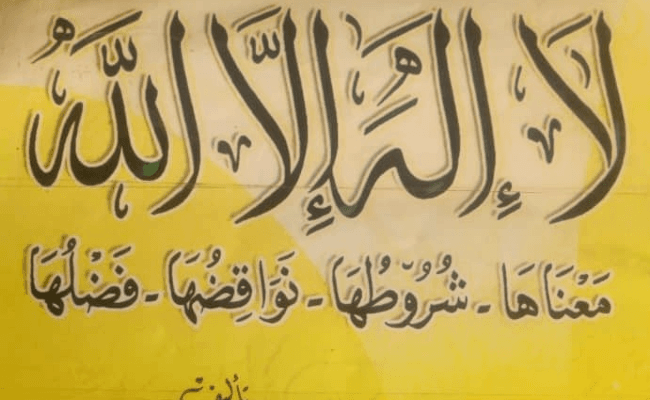 لَا إِلٰهَ إِلَّا اللّٰهُ
مَعْنَاهَا - شُرُوْطُهَا - نَوَاقِضُهَا - فَضْلُهَا
تأليف